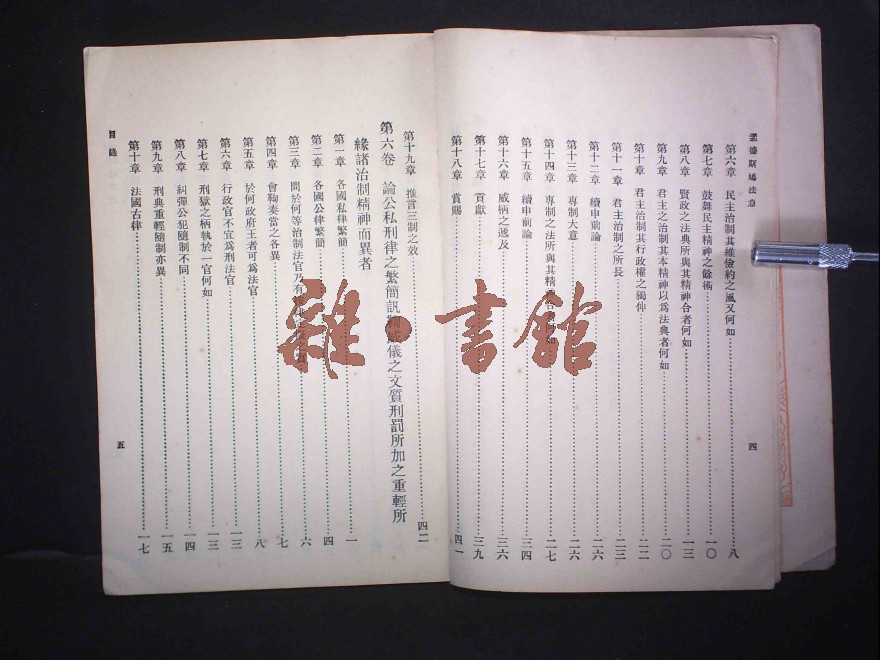 孟德斯鳩法意
第六章 民主治制其維儉約之風又何如 八
第七章 鼓舞民主精神之餘術 一〇
第八章 賢政之法典所與其精神合者何如 一三
第九章 君主之治制其本精神以為法典者何如 二〇
第十章 君主治制其行政權之獨伸 二二
第十一章 君主治制之所長 二三
第十二章 續申前論 二六
第十三章 專制大意 二六
第十四章 專制之法所與其精神合者何如 二七
第十五章 續申前論 三四
第十六章 威柄之遞及 三六
第十七章 貢獻 三九
第十八章 賞賜 四一
四
第十九章 推言三制之效 四二
第六卷 論公私刑律之繁簡訊鞫威儀之文質刑罰所加之重輕所
緣諸治制精神而異者
第一章 各國私律繁簡 一
第二章 各國公律繁簡 四
第三章 問於何等治制法官乃有 六
第四章 會鞫奏當之各異 七
第五章 於何政府王者可為法官 八
第六章 行政官不宜為刑法官 一三
第七章 刑獄之柄執於一官何如 一三
第八章 糾彈公犯隨制不同 一四
第九章 刑典重輕隨制亦異 一五
第十章 法國古律 一七
目錄
五
雜·書館